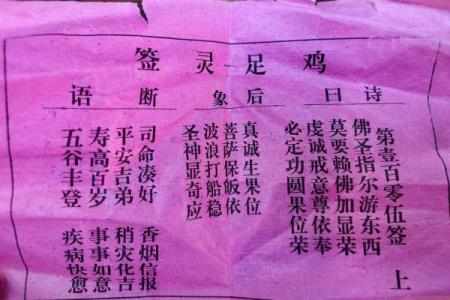 鸡足灵签
第壹百零伍签 上
诗曰
佛圣指尔游东西
莫要赖佛加显荣
虔诚戒意尊依奉
必定功圆果位荣
后象
真诚生果位
菩萨保皈依
波浪打船稳
圣神显奇应
断语
司命凑好 香烟信报
平安吉弟 稍灾化吉
寿高百岁 事事如意
五谷丰登 疾病快愈